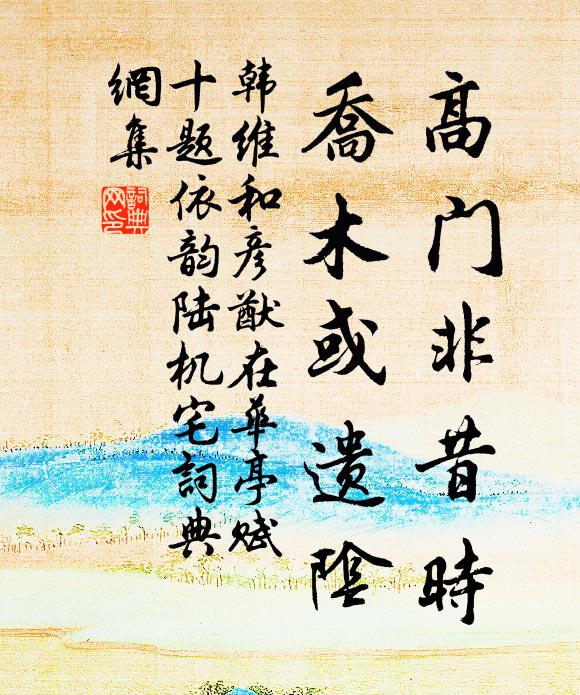 高门非昔時
喬木或遗陰
韩维和彦猷在華亭赋
十题依韵陆机宅詞典
網集
詞典网印